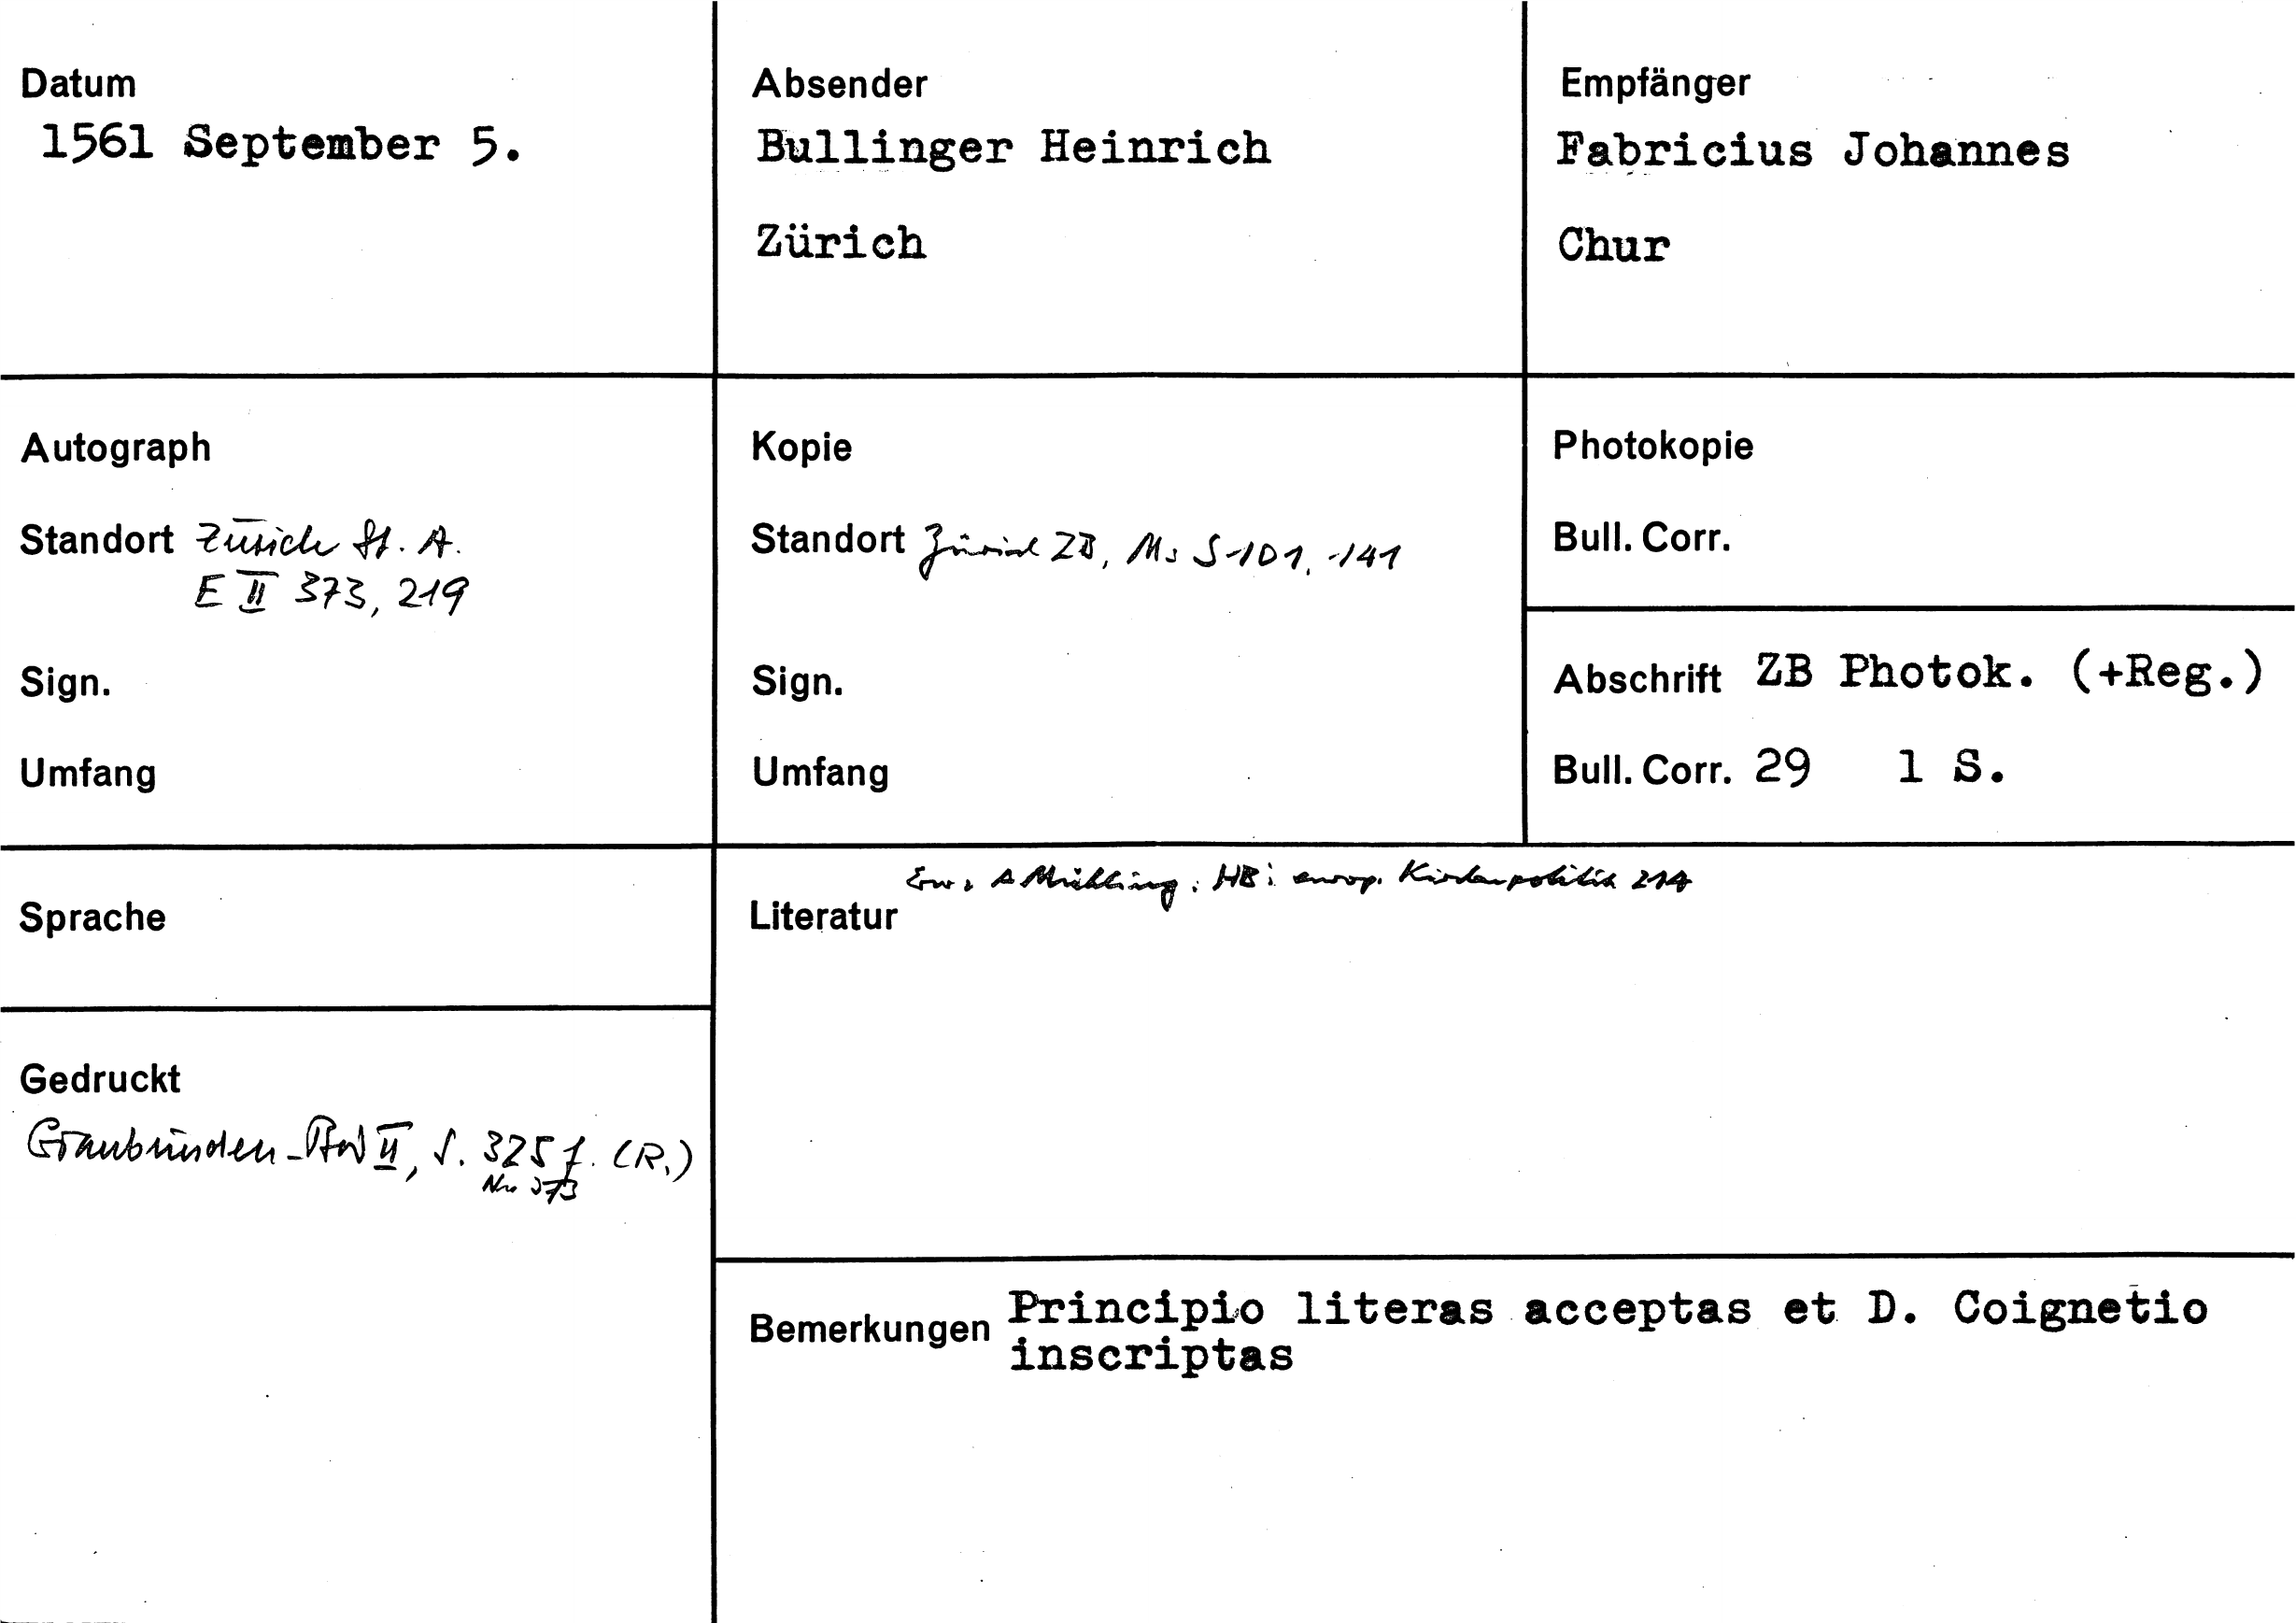 Datum
1561 September 5.
Absender
Bullinger Heinrich
Zürich
Empfänger
Fabricius Johannes
Chur
Autograph
Standort Zürich St. A.
E II 373, 219
Sign.
Umfang
Kopie
Standort Zürich ZB, Ms S 101, 141
Sign.
Umfang
Photokopie
Bull. Corr.
Abschrift ZB Photok. (+Reg.)
Bull. Corr. 29 1 S.
Sprache
Gedruckt
Graubünden-Bw II, S. 325 f. (R.)
Nr. 373
Erw: A Mühling: HB: europ. Kirchenpolitik 214
Literatur
Bemerkungen Principio literas acceptas et D. Coignetio
inscriptas